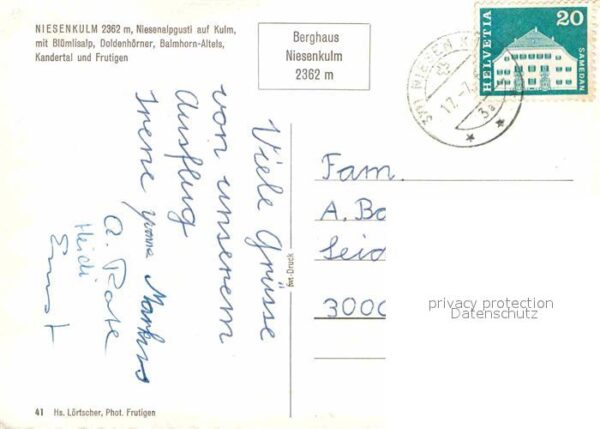 NIESENKULM 2362 m, Niesenalpgusti auf Kulm,
mit Blümlisalp, Doldenhörner, Balmhorn-Altels,
Kandertal und Frutigen
Berghaus
Niesenkulm
2362 m
HELVETIA
20
SAMEDAN
3711 NIESEN
17.-7.
3a
Viele Grüsse
von unserem
Ausflug
Irene Yvonne Markus
A.
Heidi
Ernst
Fam.
A. Bo
Seid
3000
privacy protection
Datenschutz
Druck
41 Hs. Lörtscher, Phot. Frutigen